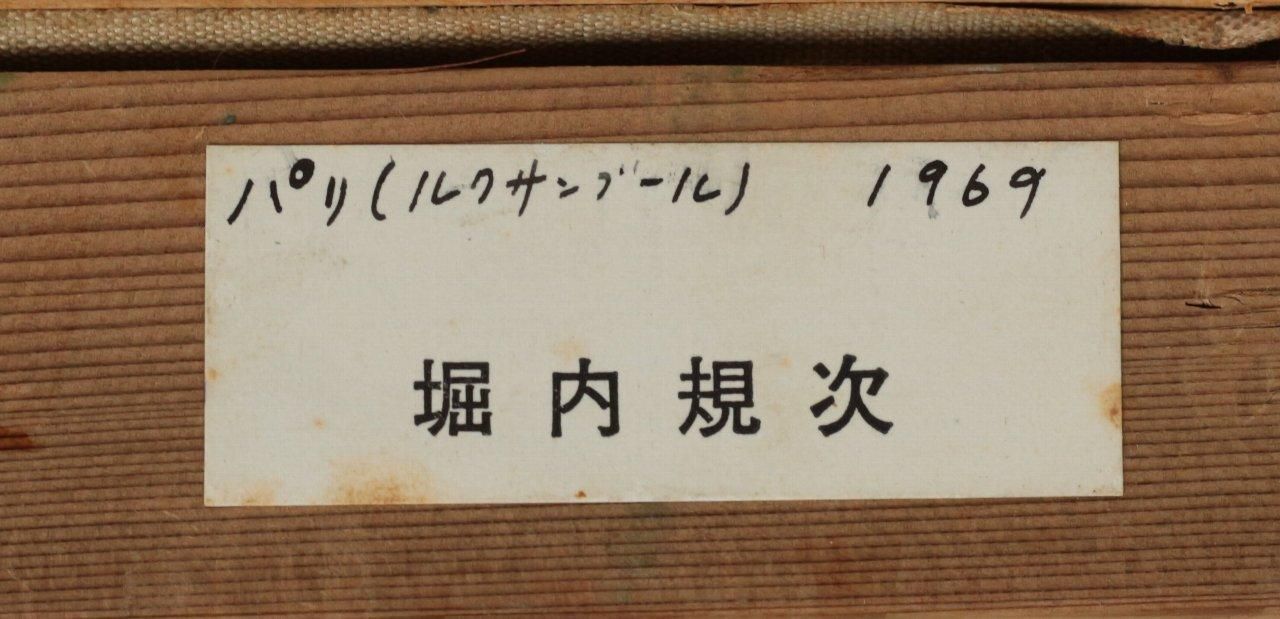 パリ(ルクサンブール) 1969
堀内規次